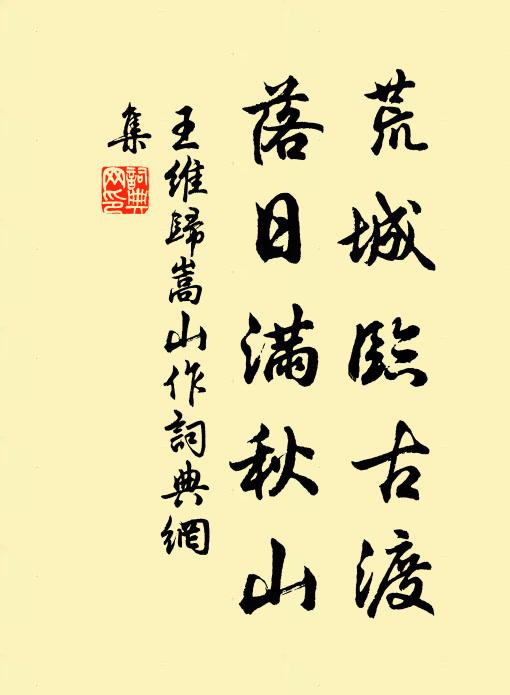 荒城臨古渡
落日滿秋山
王維歸嵩山作詞典網
集
詞典
网印